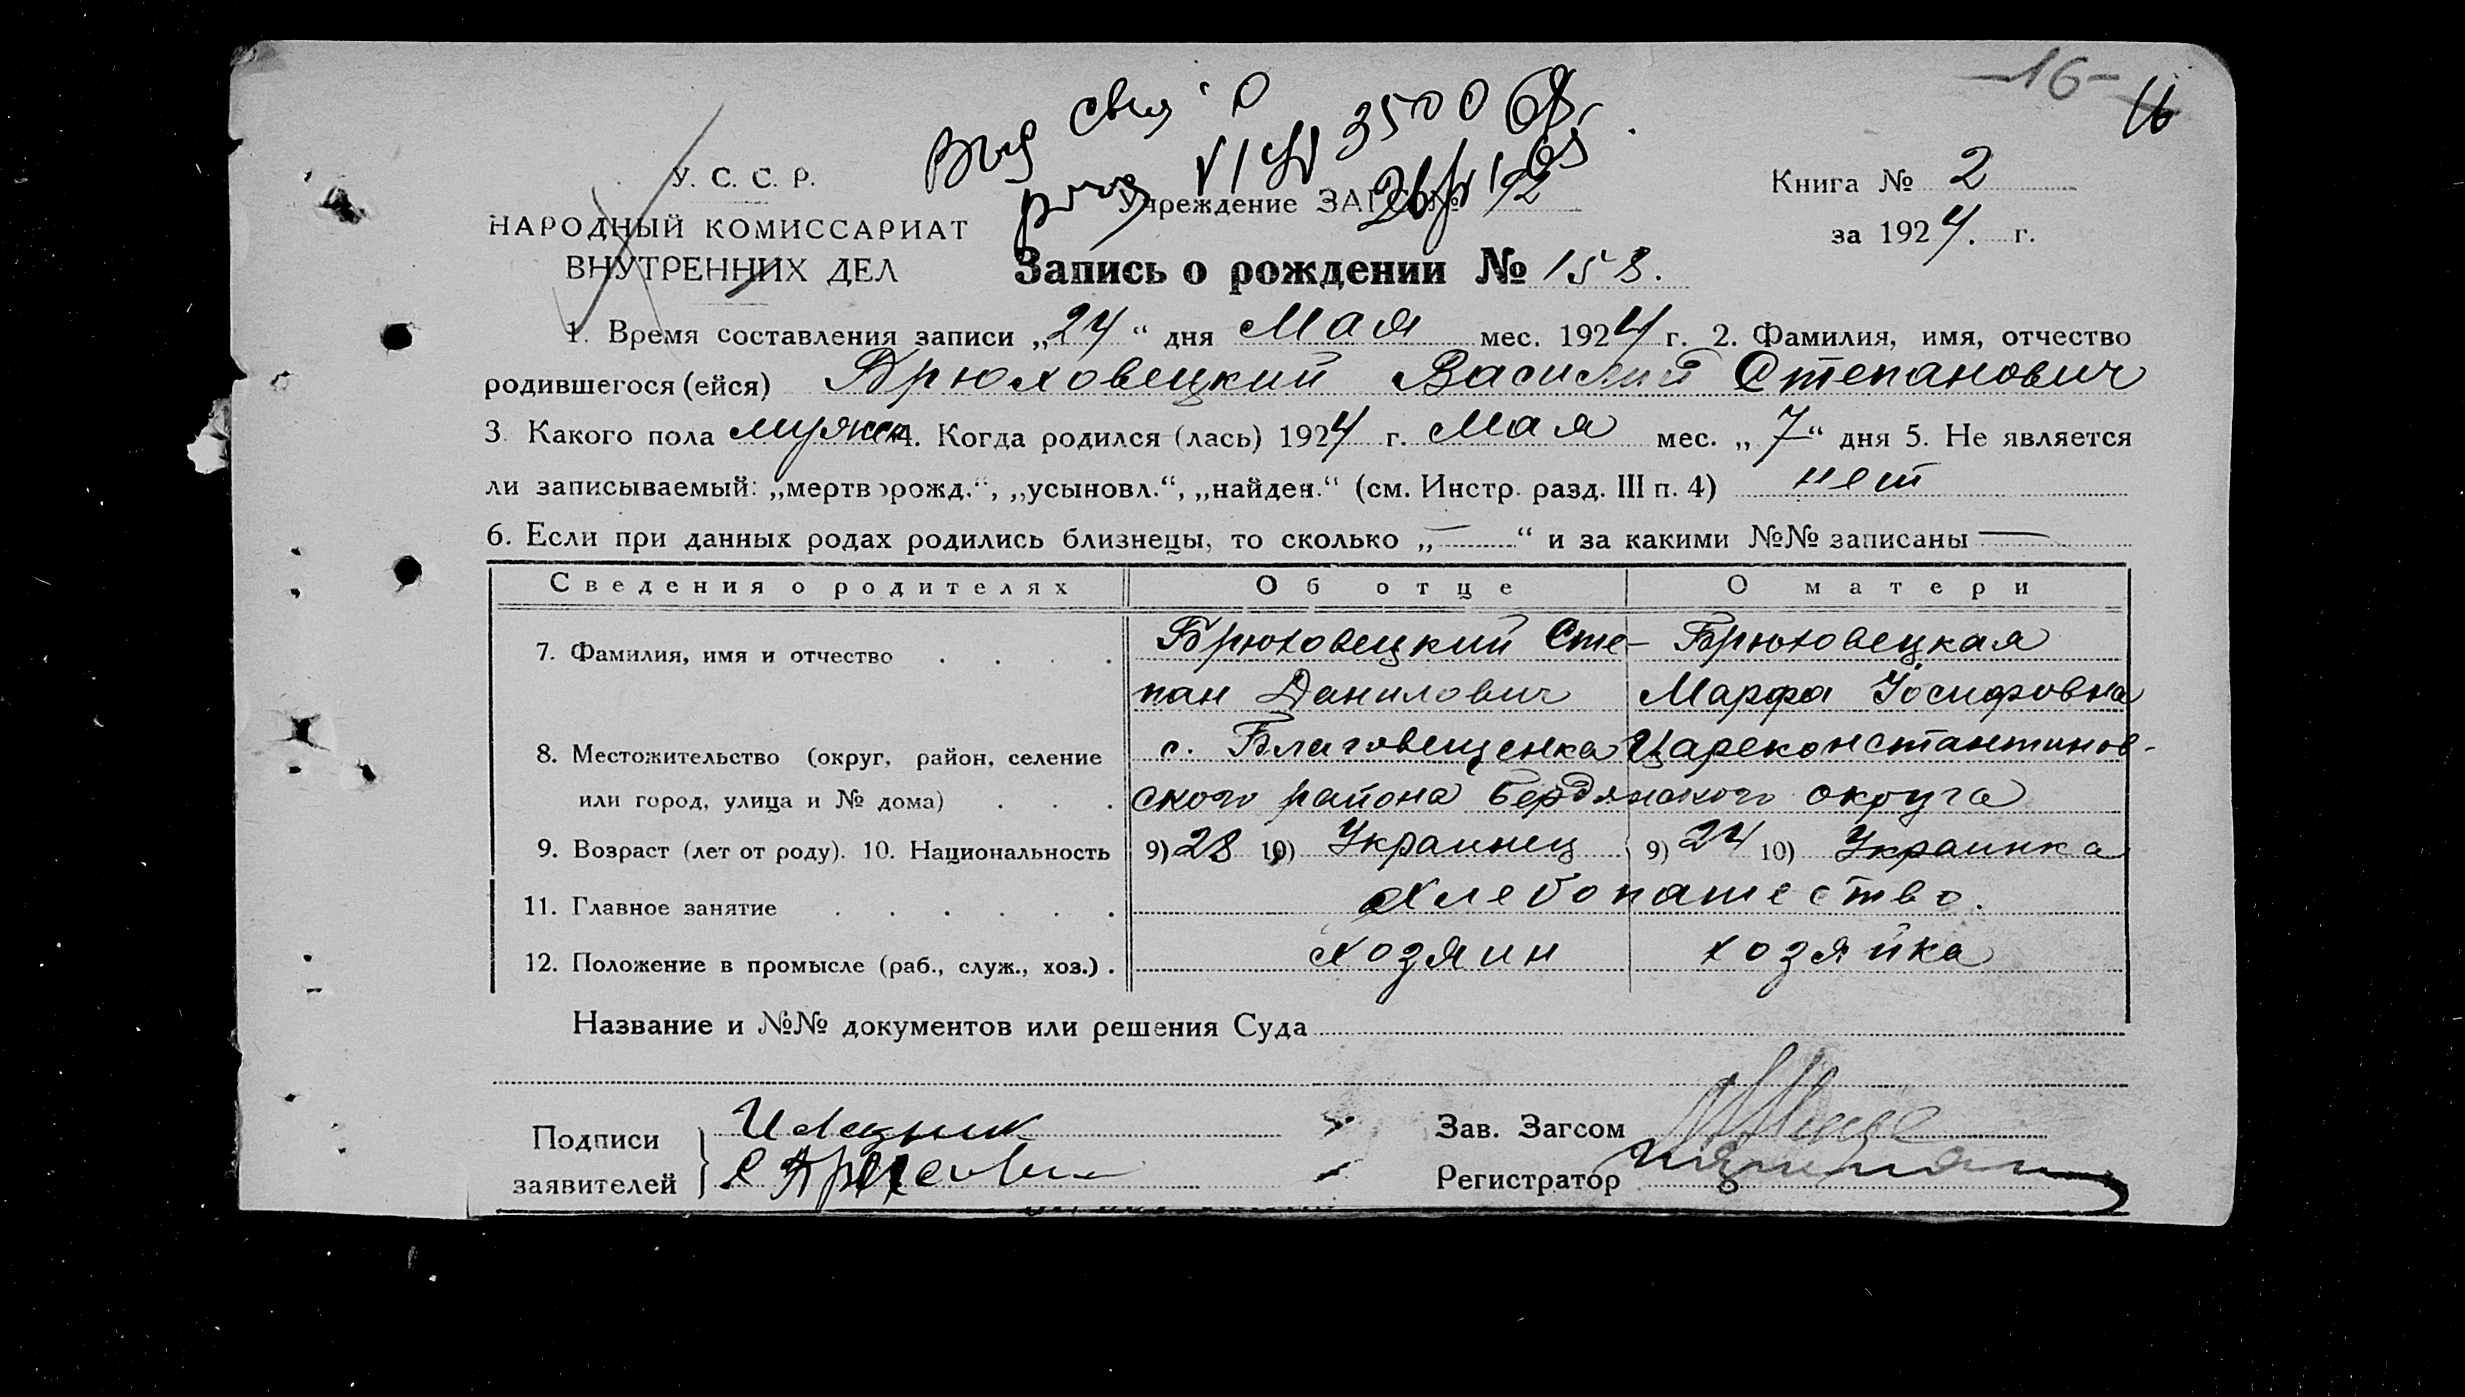 -16-
16
Выд свид о
рожд VI ЕУ 3500 68
У. С. С. Р.
НАРОДНЫЙ КОМИССАРИАТ
ВНУТРЕННИХ ДЕЛ
Учреждение ЗАГС №
Книга № 2
за 1924. г.
Запись о рождении № 158.
1. Время составления записи „24“ дня Мая мес. 1924 г. 2. Фамилия, имя, отчество
родившегося (ейся) Брюховецкий Василий Степанович
3. Какого пола мужск 4. Когда родился (лась) 1924 г. Мая мес. „7“ дня 5. Не является
ли записываемый: „мертворожд.“, „усыновл.“, „найден.“ (см. Инстр. разд. III п. 4) нет
6. Если при данных родах родились близнецы, то сколько „—“ и за какими №№ записаны —
Сведения о родителях Об отце О матери
7. Фамилия, имя и отчество . . . . Брюховецкий Сте- Брюховецкая
пан Данилович Марфа Иосифовна
8. Местожительство (округ, район, селение с. Благовещенка Цареконстантинов-
или город, улица и № дома) . . . ского района Бердянского округа
9. Возраст (лет от роду). 10. Национальность 9) 28 10) Украинец 9) 24 10) Украинка
11. Главное занятие . . . . . . Хлебопашество.
12. Положение в промысле (раб., служ., хоз.) . хозяин хозяйка
Название и №№ документов или решения Суда
Подписи
заявителей
Зав. Загсом
Регистратор